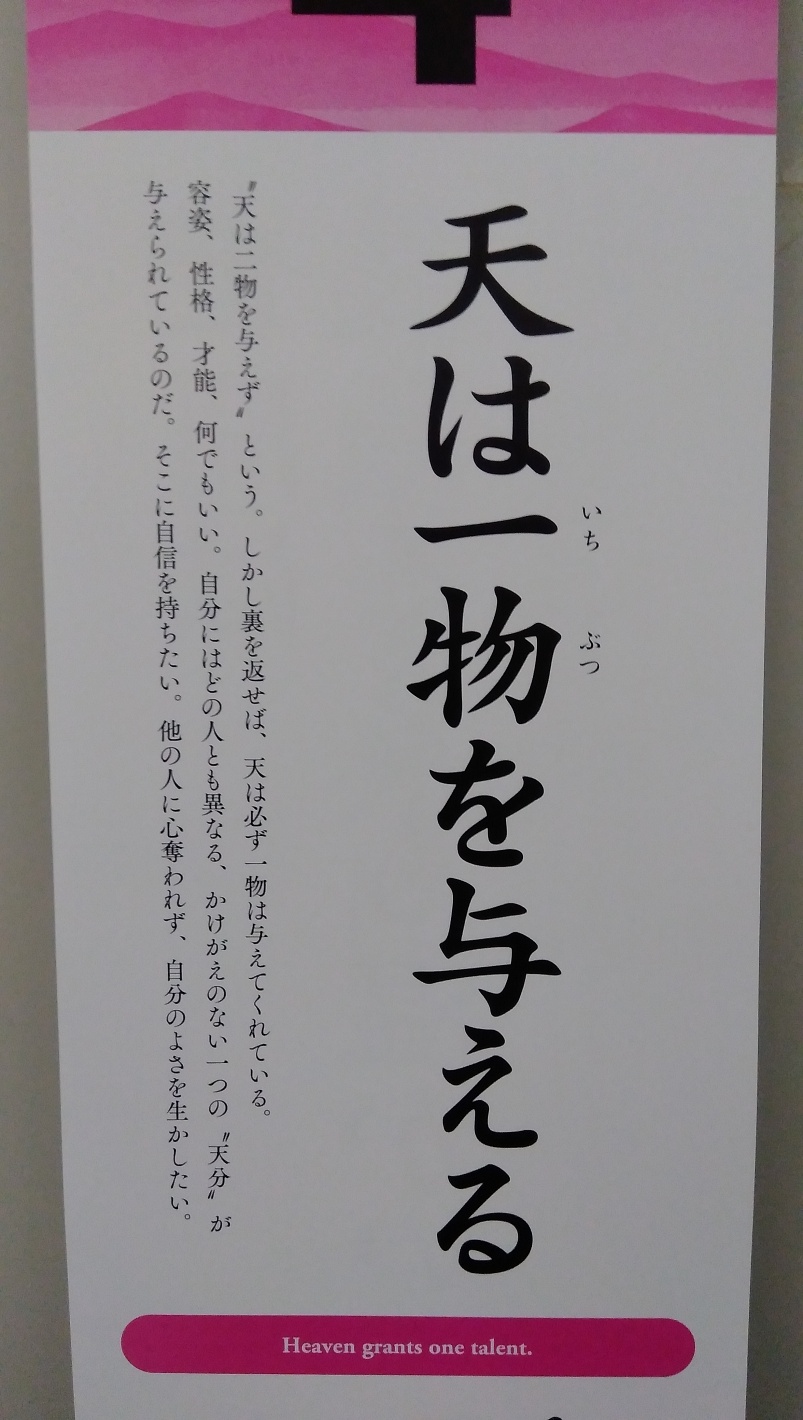 天は一物を与える
いち
ぶつ
〝天は二物を与えず〟という。しかし裏を返せば、天は必ず一物は与えてくれている。
容姿、性格、才能、何でもいい。自分にはどの人とも異なる、かけがえのない一つの〝天分〟が
与えられているのだ。そこに自信を持ちたい。他の人に心奪われず、自分のよさを生かしたい。
Heaven grants one talent.